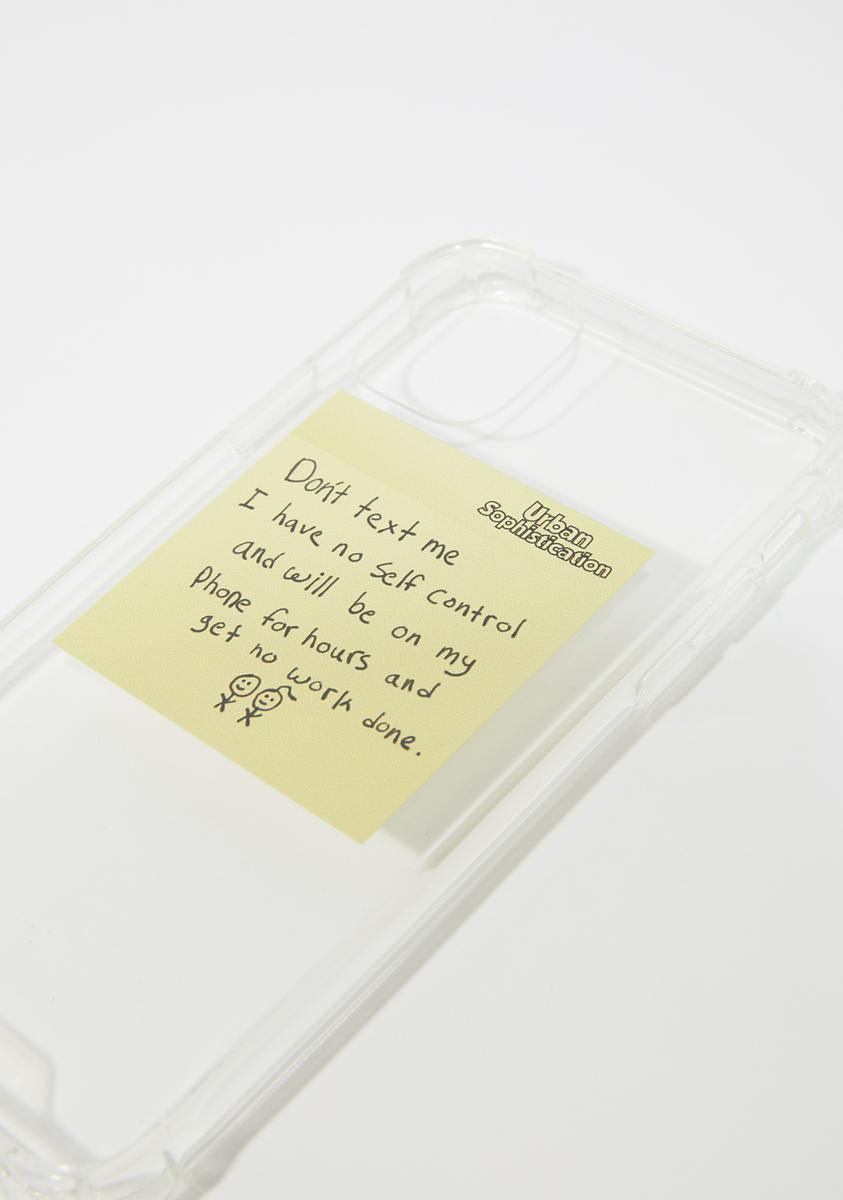 Urban
Sophistication
Don't text me
I have no self control
and will be on my
Phone for hours and
get no work done.